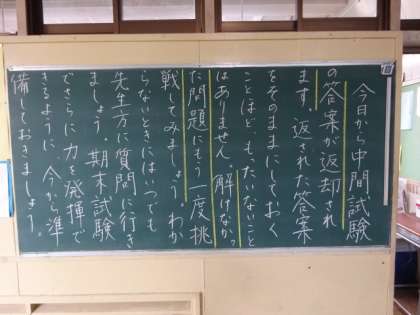 今日から中間試験
の答案が返却され
ます。返された答案
をそのままにしておく
ことほど、もったいないこと
はありません。解けなかっ
た問題にもう一度挑
戦してみましょう。わか
らないときにはいつでも
先生方に質問に行き
ましょう。期末試験
でさらに力を発揮で
きるように、今から準
備しておきましょう。